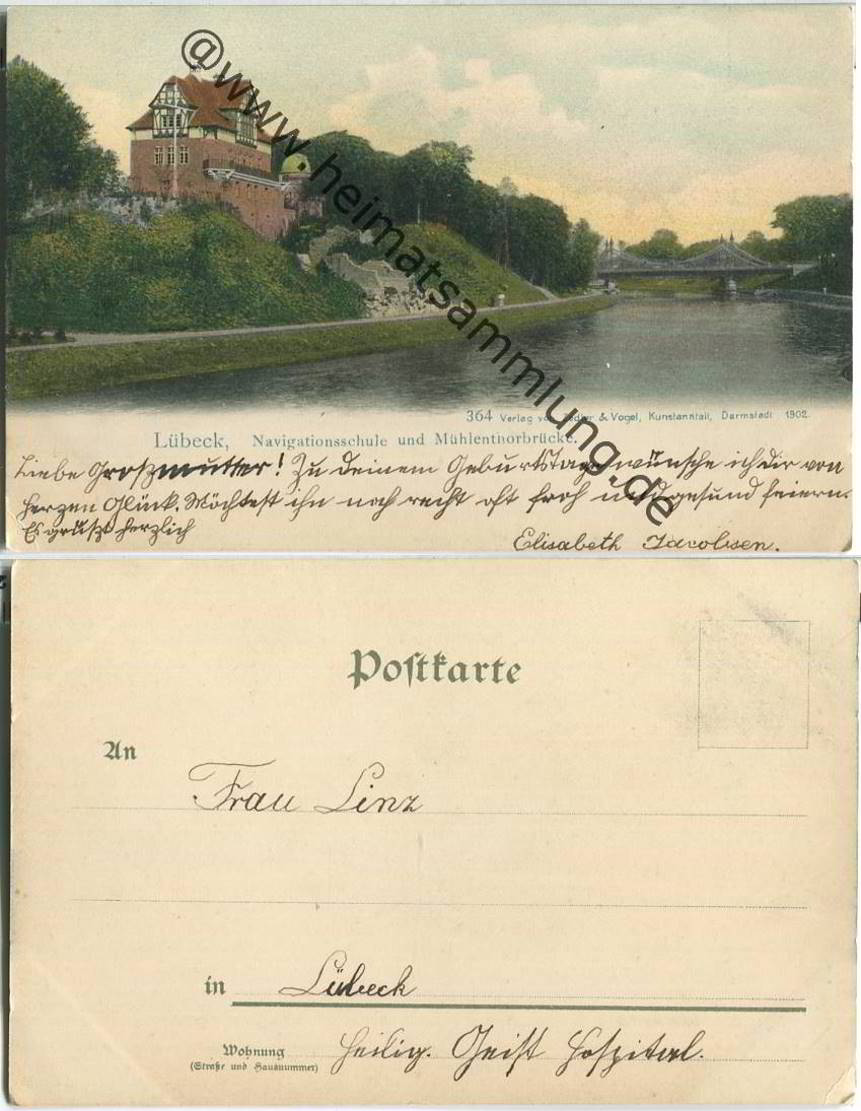 @www.heimatsammlung.de
364 Verlag von Zedler & Vogel, Kunstanstalt, Darmstadt 1902.
Lübeck, Navigationsschule und Mühlenthorbrücke.
Liebe Großmutter! Zu deinem Geburtstage wünsche ich dir von
Herzen Glück. Möchtest ihn noch recht oft froh und gesund feiern.
Es grüßt herzlich
Elisabeth Jacobsen.
Postkarte
An
Frau Linz
in Lübeck
Wohnung Heilig. Geist Hospital.
(Straße und Hausnummer)